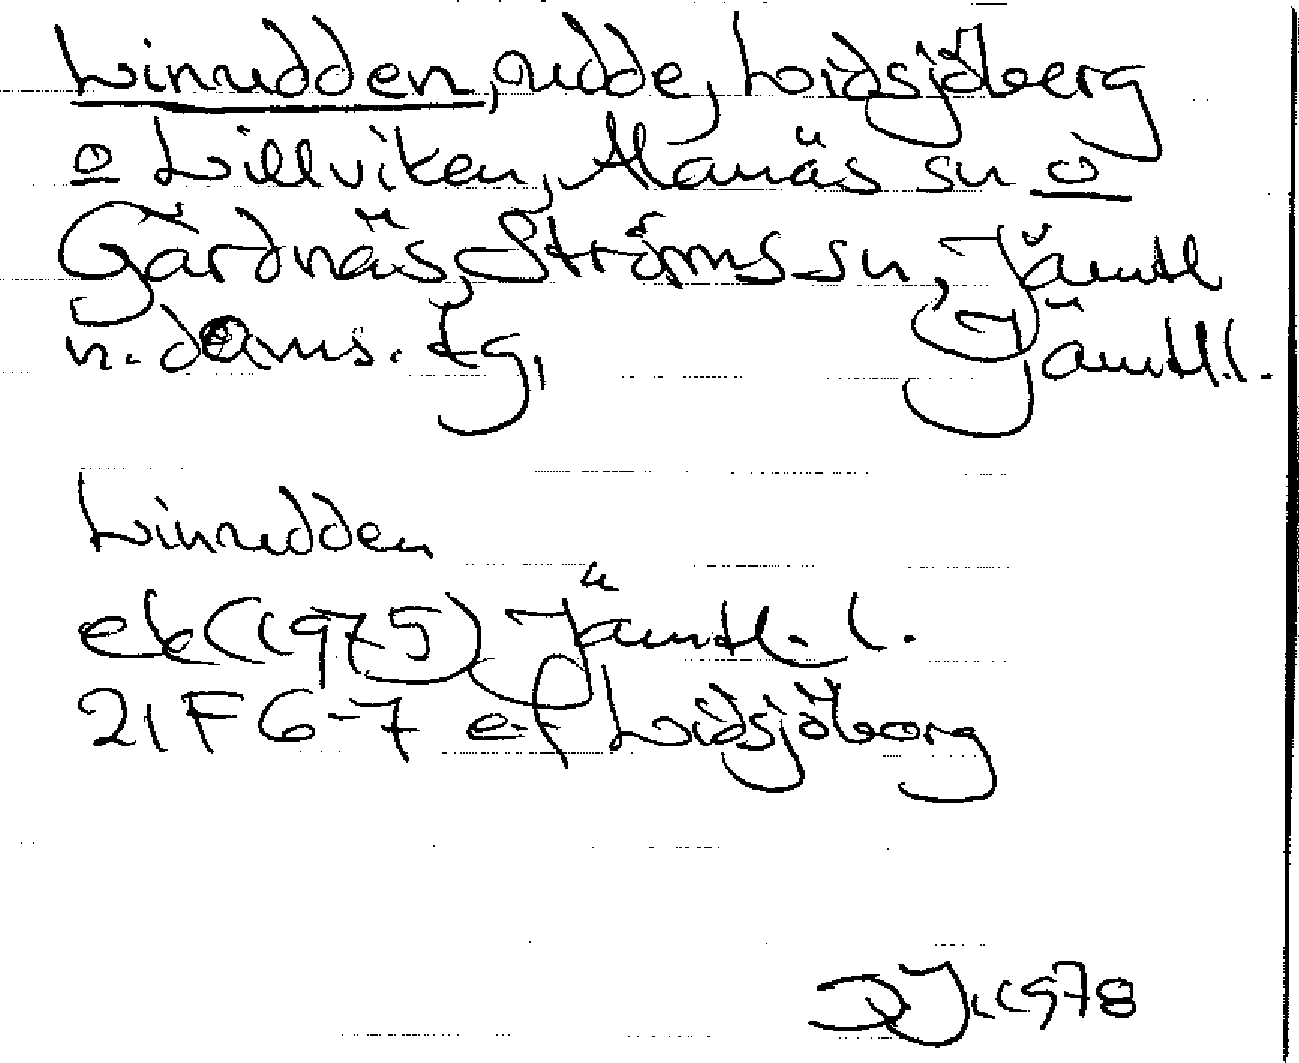 Linudden, udde, Lidsjöberg
o Lillviken, Alanäs sn o
Gärdnäs, Ströms sn, Jämtl
n. doms. fg, Jämtl.l.
Linudden
ek (1975) Jämtl. l.
21 F 6-7 e-f Lidsjöberg
DJ. 1978